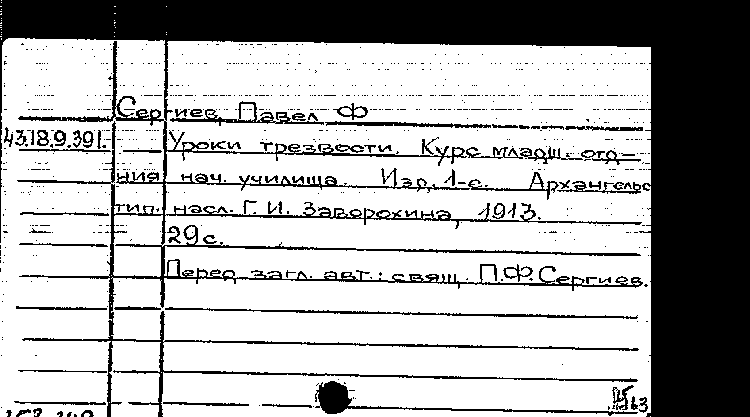 Сергиев, Павел Ф
43.18.9.391. Уроки трезвости. Курс младш. отд-
ния нач. училища. Изд. 1-е. Архангельс
тип. насл. Г. И. Заворохина, 1913.
29 с.
Перед загл. авт.: свящ. П.Ф. Сергиев.